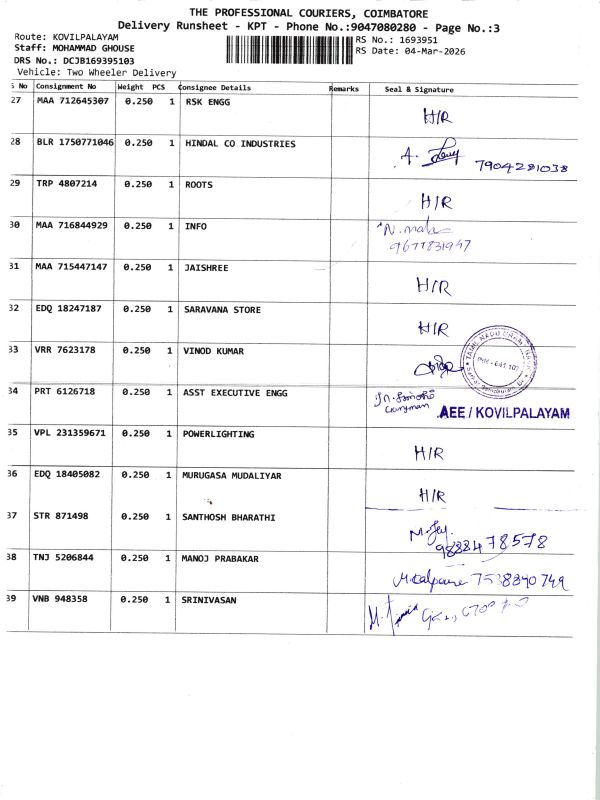 THE PROFESSIONAL COURIERS, COIMBATORE
Delivery Runsheet - KPT - Phone No.:9047080280 - Page No.:3
Route: KOVILPALAYAM
RS No.: 1693951
Staff: MOHAMMAD GHOUSE
RS Date: 04-Mar-2026
DRS No.: DCJB169395103
Vehicle: Two Wheeler Delivery
S No Consignment No Weight PCS Consignee Details Remarks Seal & Signature
27 MAA 712645307 0.250 1 RSK ENGG H/R
28 BLR 1750771046 0.250 1 HINDAL CO INDUSTRIES A. 7904281038
29 TRP 4807214 0.250 1 ROOTS H/R
30 MAA 716844929 0.250 1 INFO N. mala
9677831947
31 MAA 715447147 0.250 1 JAISHREE H/R
32 EDQ 18247187 0.250 1 SARAVANA STORE H/R
33 VRR 7623178 0.250 1 VINOD KUMAR
34 PRT 6126718 0.250 1 ASST EXECUTIVE ENGG
AEE / KOVILPALAYAM
35 VPL 231359671 0.250 1 POWERLIGHTING H/R
36 EDQ 18405082 0.250 1 MURUGASA MUDALIYAR H/R
37 STR 871498 0.250 1 SANTHOSH BHARATHI
38 TNJ 5206844 0.250 1 MANOJ PRABAKAR
39 VNB 948358 0.250 1 SRINIVASAN